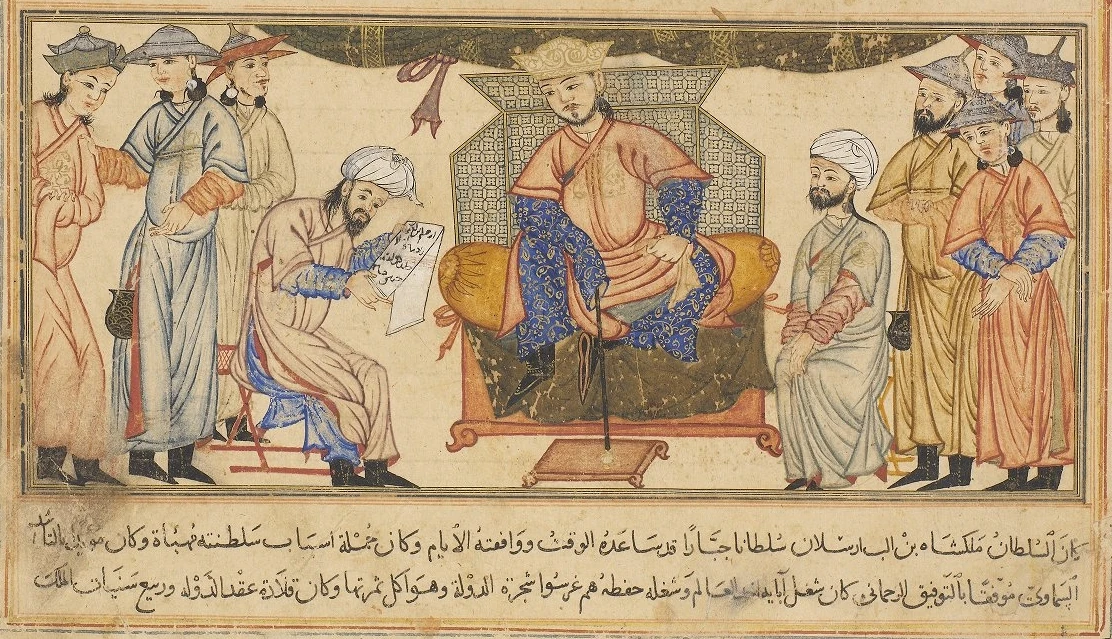 كان السلطان ملكشاه بن الب ارسلان سلطانا جبارا قد ساعده الوقت ووافقته الايام وكان جملة اسباب سلطنته مهيأة وكان
السماوى موفقا بالتوفيق الرحمانى كان شغل آبايه العالم وشغله حفظه هم غرسوا شجرة الدولة وهو اكل ثمرتها وكان قلادة عقد الدوله وربيع الملك